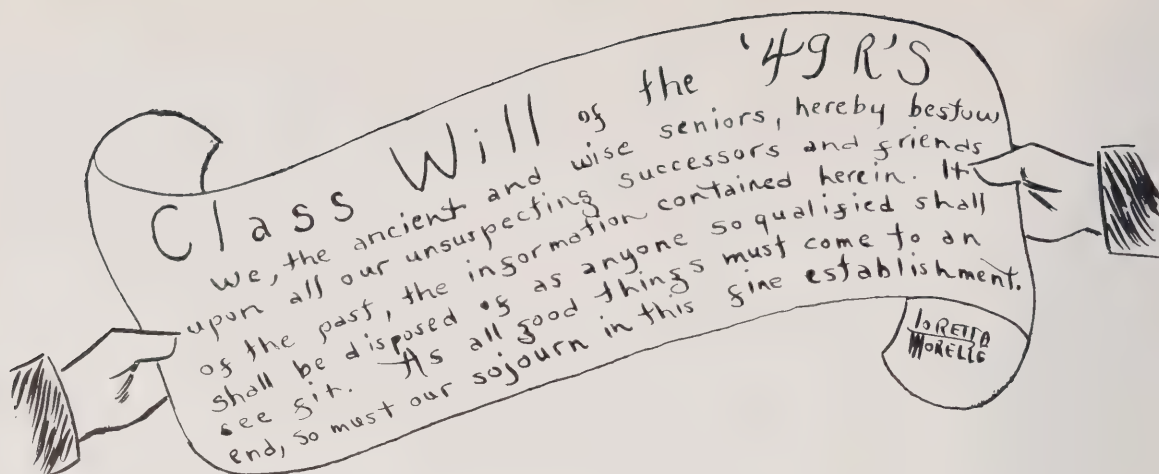 Class Will of the '49R'S
We, the ancient and wise seniors, hereby bestow
upon all our unsuspecting successors and friends
of the past, the information contained herein. It
shall be disposed of as anyone so qualified shall
see fit. As all good things must come to an
end, so must our sojourn in this fine establishment.
LORETTA
MORELLE